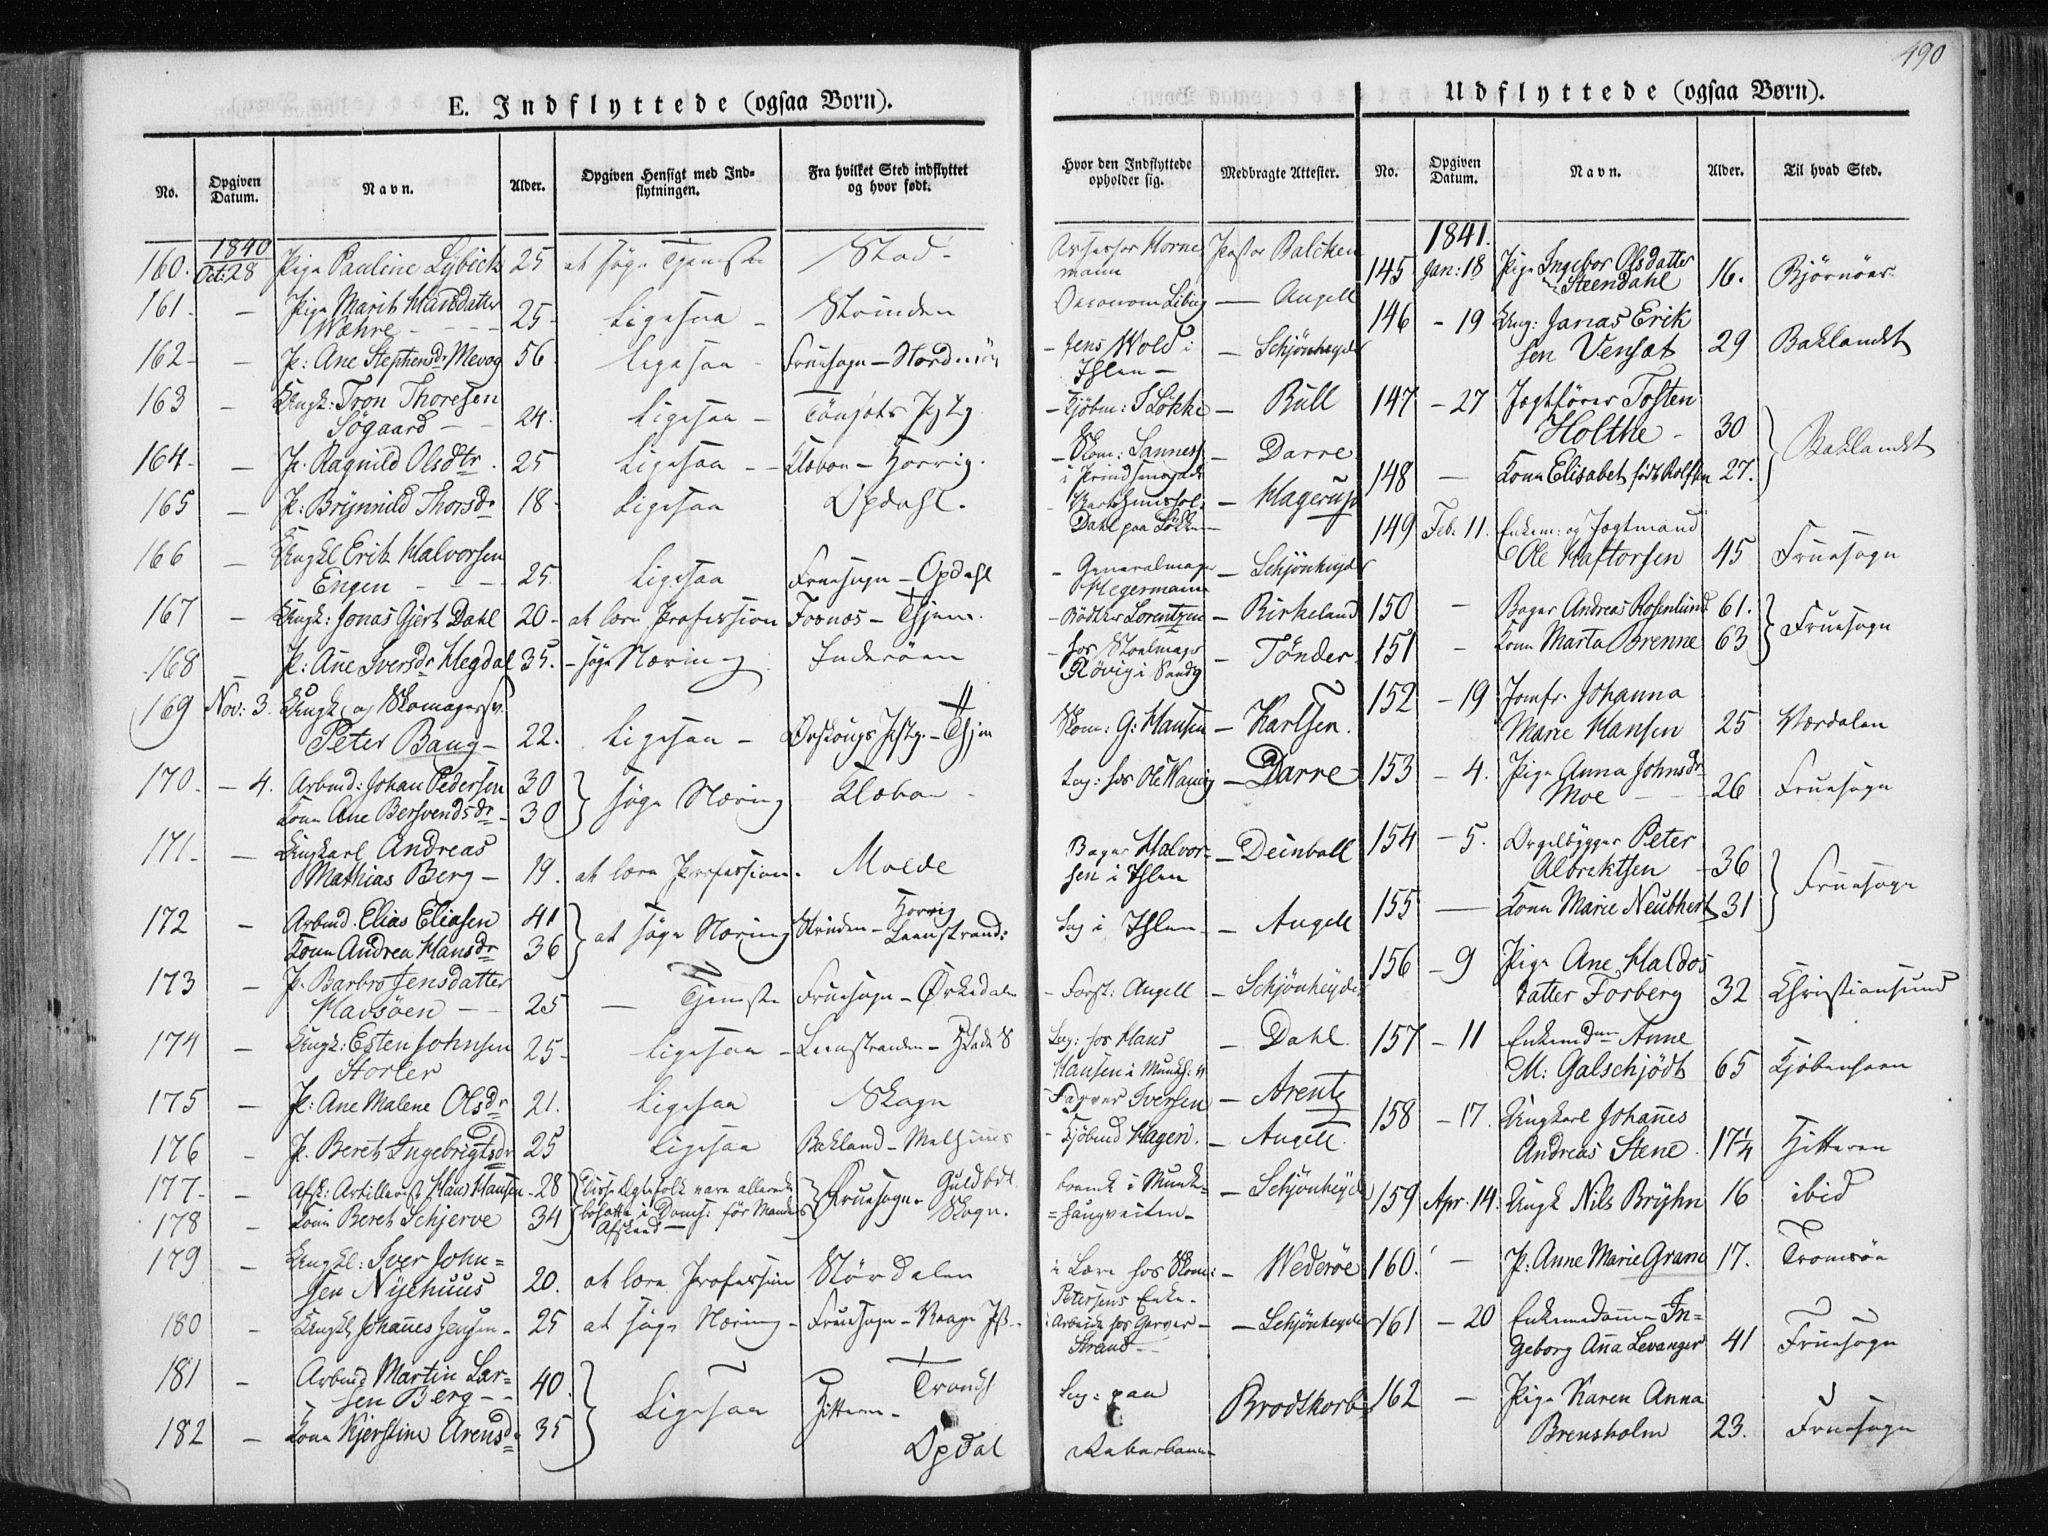 490
E. Indflyttede (ogsaa Børn).
No. Opgiven Datum. Navn. Alder. Opgiven Hensigt med Indflytningen. Fra hvilket Sted indflyttet og hvor født. Hvor den Indflyttede opholder sig. Medbragte Attester.
1840
160. Oct: 28 Pige Pauline Lybick 25 at søge Tjeneste Stad- Assessor Hornemann Pastor Balchen
161 - Pige Marit Hansdatter Wæhre - 25- Ligesaa - Strinden Oeconom — Angell
162- - P: Ane Stephensdr Mevog 56- Ligesaa - Fruesogn - Nordmør - Jens Wold i Ihlen - - Schjönheyder
163 - Ungk: Tron Thoresen Søgaard - - 24. Ligesaa - - Kjøbm: Løkke - Bull
164- - P. Ragnild Olsdtr. 25 Ligesaa - - Klæboe - Horrig. - Skom: Sannes i Prindsensgade - Darre
165 - P: Brynnild Thorsdr 18- Ligesaa Opdahl. Dahl paa - Hagerup
166 - Ungkl Erik Halvorsen Engen - - 25. Ligesaa Fruesogn - Opdahl - Generalmajor Hegermann - Schjönheyder
167 - Ungk: Jonas Gjert Dahl 20- at lære Profession Fosnæs - Thjem. - Bødker Lorentzen - Birkeland
168 - P: Ane Iversdr Hegdal 35. - søge Næring Inderøen - hos Røvig i - Tønder
169 Nov: 3. Ungk. og Skomagersv. Peter Bang - 22. Ligesaa - Ørskougs Pstg. - Thjem Skom: G: Hansen - Karlsen.
170. - 4. Arbmd: Johan Pedersen 30 Kone Ane Bersvendsdr - 30 søge Næring Klæboe - Log: hos Ole - Darre
171. - Ungkarl Andreas Mathias Berg - 19. at lære Profession. Molde Bager Halvorsen i Ihlen - Deinboll
172 - Arbmd. Elias Eliasen 41 Kone Andrea Hansdr 36 at søge Næring Strinden - Horrig Leenstrand: Log i Ihlen - - Angell
173 - P. Barbro Jensdatter Havsøen - - 25 — Tjeneste Fruesogn - Ørkedalen - Forst: Angell - Schjönheyder
174 - Ungk: Esten Johnsen Storler 25- Ligesaa - Leenstranden - Log: hos Hans Hansen i Munkh: v - Dahl.
175 - P: Ane Malene Olsdr 21. Ligesaa Skogn - Farver Iversen - Arentz
176 - P. Beret Ingebrigtsdr 25 Ligesaa Bakland - Melhuus - Kjøbmd Hagen. - Angell.
177- - Afsk: Artillerist Hans Hansen - 28 Disse Ægtefolk vare allerede bosatte i Doms: før Mandens Afsked — Fruesogn - Guldbdl. Skogn. boende i Munkehaugveiten - - Schjönheyder
178 - Kone Beret Schjerve 34
179 - Ungkl: Iver Johnsen Nyehuus 20. at lære Profession Størdalen i Lære hos Skom: Petersens Enke - - Wederøe
180 - Ungkl Johanes Jensen - 25 at søge Næring - Fruesogn - i Arbeide hos Garver Strand - - Schjönheyder
181 - Arbmd Martin Larsen Berg - - 40. Ligesaa Hitteren - Trondh Log: paa Brodtkorb
182 - Kone Kjerstine Arensd: 35 Opdal
Udflyttede (ogsaa Børn).
No. Opgiven Datum. Navn. Alder. Til hvad Sted.
1841.
145 Jan: 18 Pige Ingebor Olsdatter Steendahl 16. Bjørnøer
146 - 19 Ung: Janas Eriksen Vensæt 29 Baklandet
147 - 27 Jægtfører Tosten Holthe - 30 Baklandet
148 — Kone Elisabet født Rolfsen 27.
149 Feb. 11. Enkem: og Jægtmand Ole Haftorsen 45 Fruesogn
150 - Bager Andreas Rosenlund 61. Fruesogn
151 - Kone Marta Brenne 63
152 - 19 Jomfr. Johanna Marie Hansen 25 Værdalen
153 - 4. Pige Anna Johnsdr Moe - - 26 Fruesogn
154 - 5. Orgelbygger Peter Albrektsen 36 Fruesogn
155 — Kone Marie Neuthert 31
156 - 9 Pige Ane Haldosdatter Forberg 32 Christiansund
157 - 11 Enkemdme Anne M: Galschjødt 65 Kjøbenhavn
158 - 17. Ungkarl Johanes Andreas Stene. 17 1/4 Hitteren
159 Apr. 14. Ungk Nils Bryhn 16 ibid
160. - P: Anne Marie Grane 17. Tromsøe
161 - 20 Enkemadame Ingeborg Ana Levanger 41 Fruesogn
162 - Pige Karen Anna Brensholm 23. Fruesogn